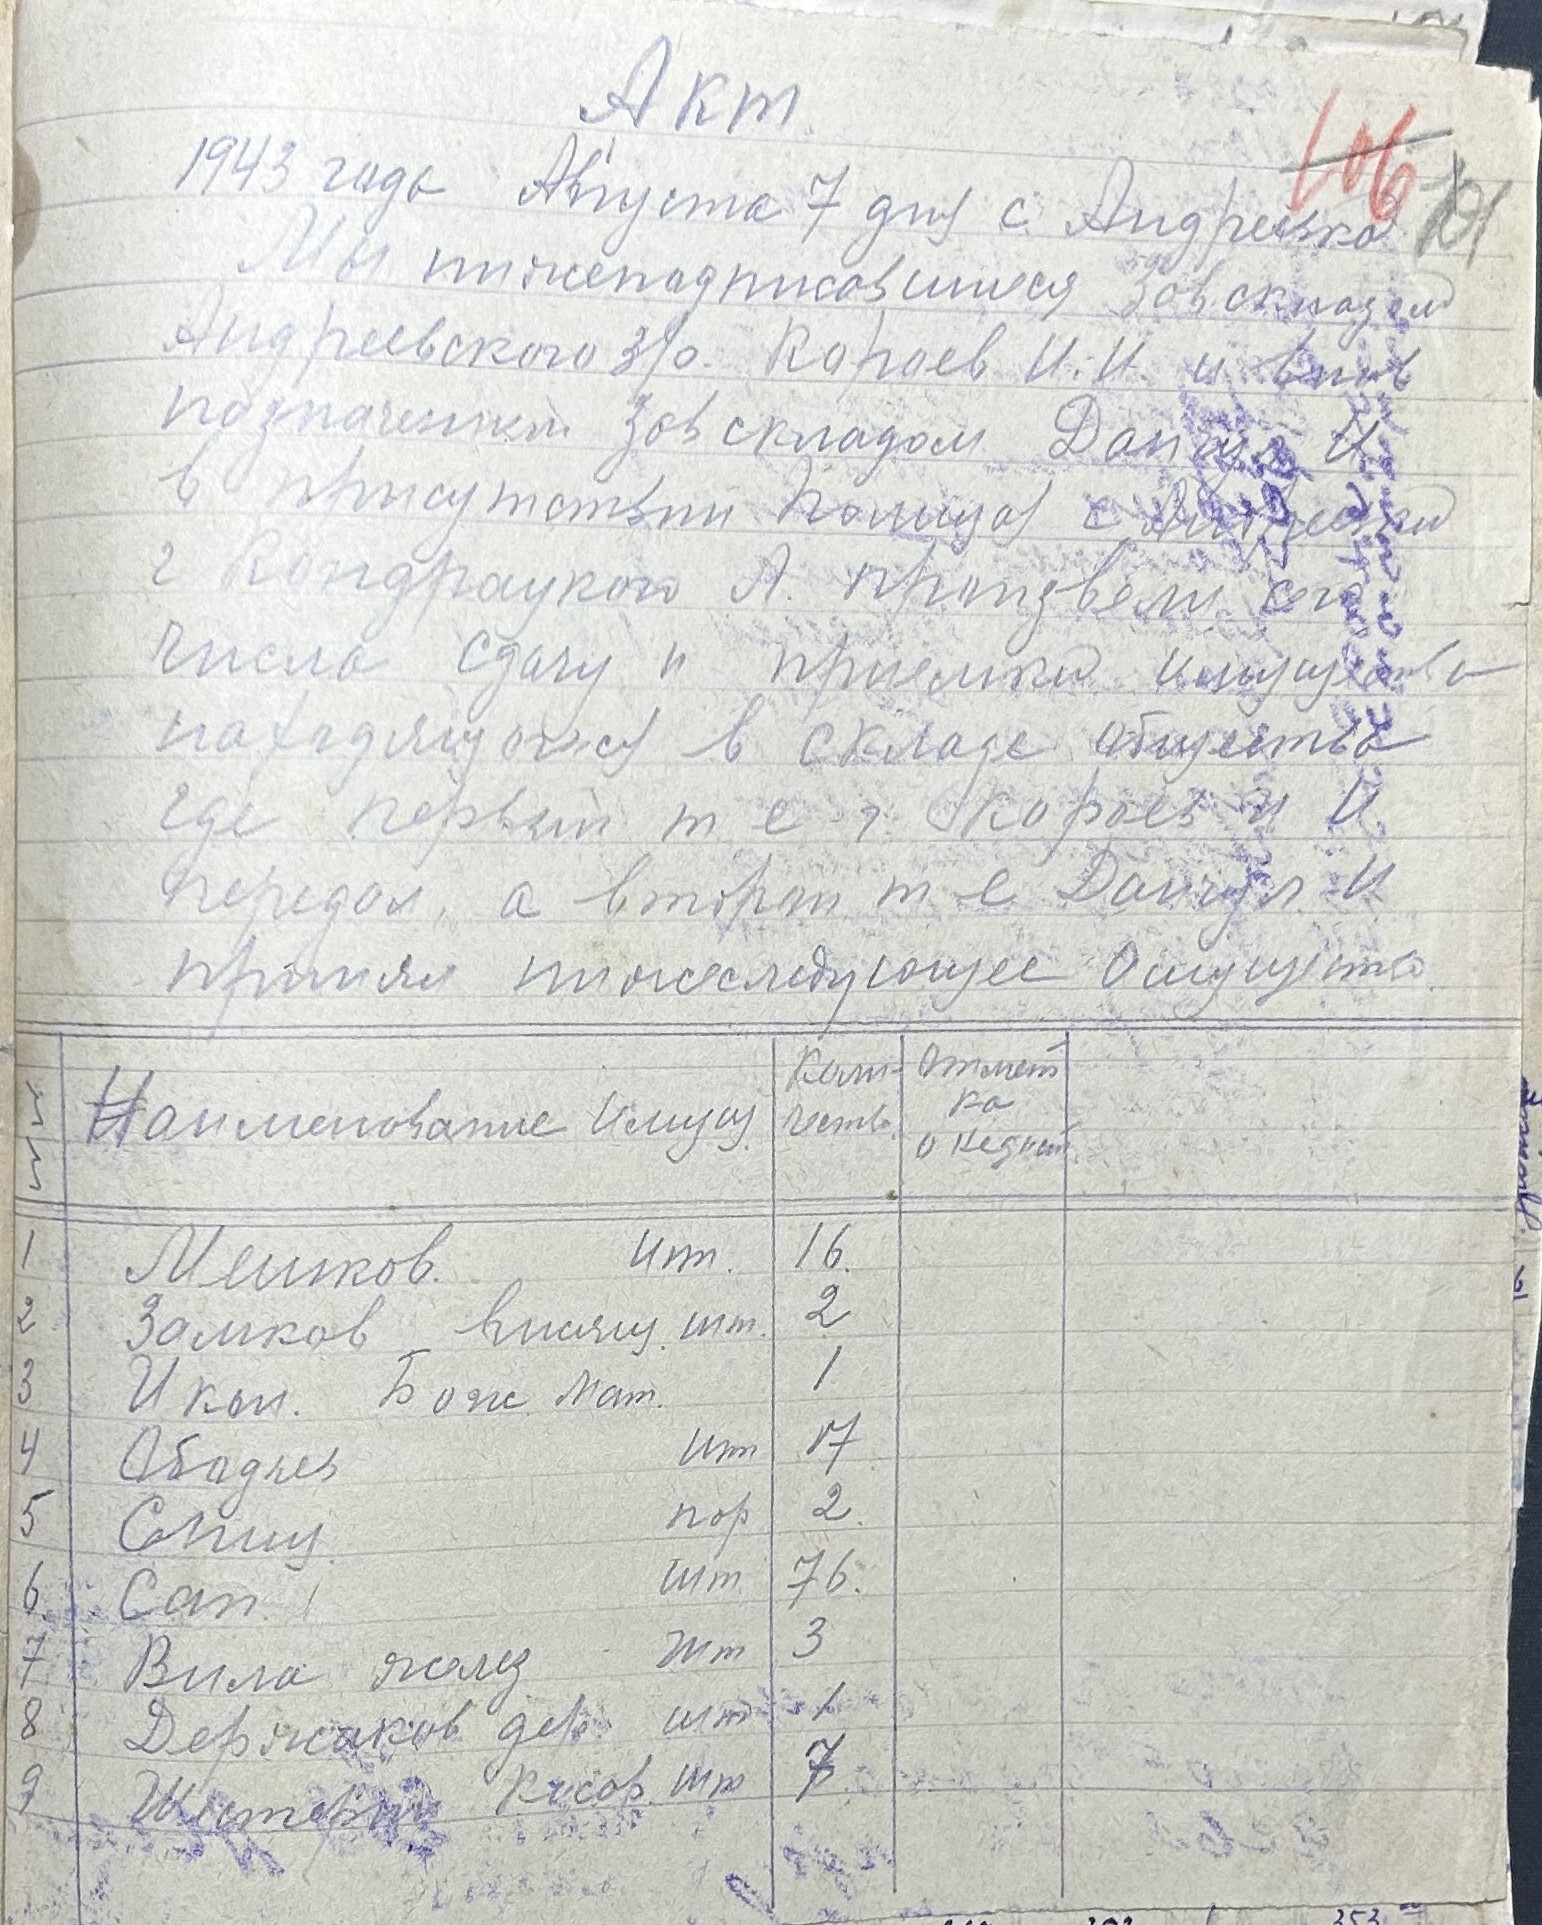 Акт.
106 121
1943 года Августа 7 дня с. Андреевка
Мы нижеподписавшиеся Зав складом
Андреевского з/о. Кораев И.И. и вновь
назначений Зав складом Данчул И.
в присутствии с Андреевки
г Кондрацкого А. произвели сего
числа сдачу и приемку имущества
находящуюся в складе общества
где первый т е г Кораев И И
передал, а второй т е Данчул. И.
принял нижеследующее имущество.
Наименование Имущ. Коли-чество. Отмет ка
1 Мешков. шт. 16.
2 Замков висящ. шт. 2
3 Икон. Бож. Мат. 1
4 Ободьев шт 17
5 пар 2.
6. Сап. шт 76.
7 Вила желез шт 3
8 Держаков дер. шт 1
9 Шестерни шт 7
353